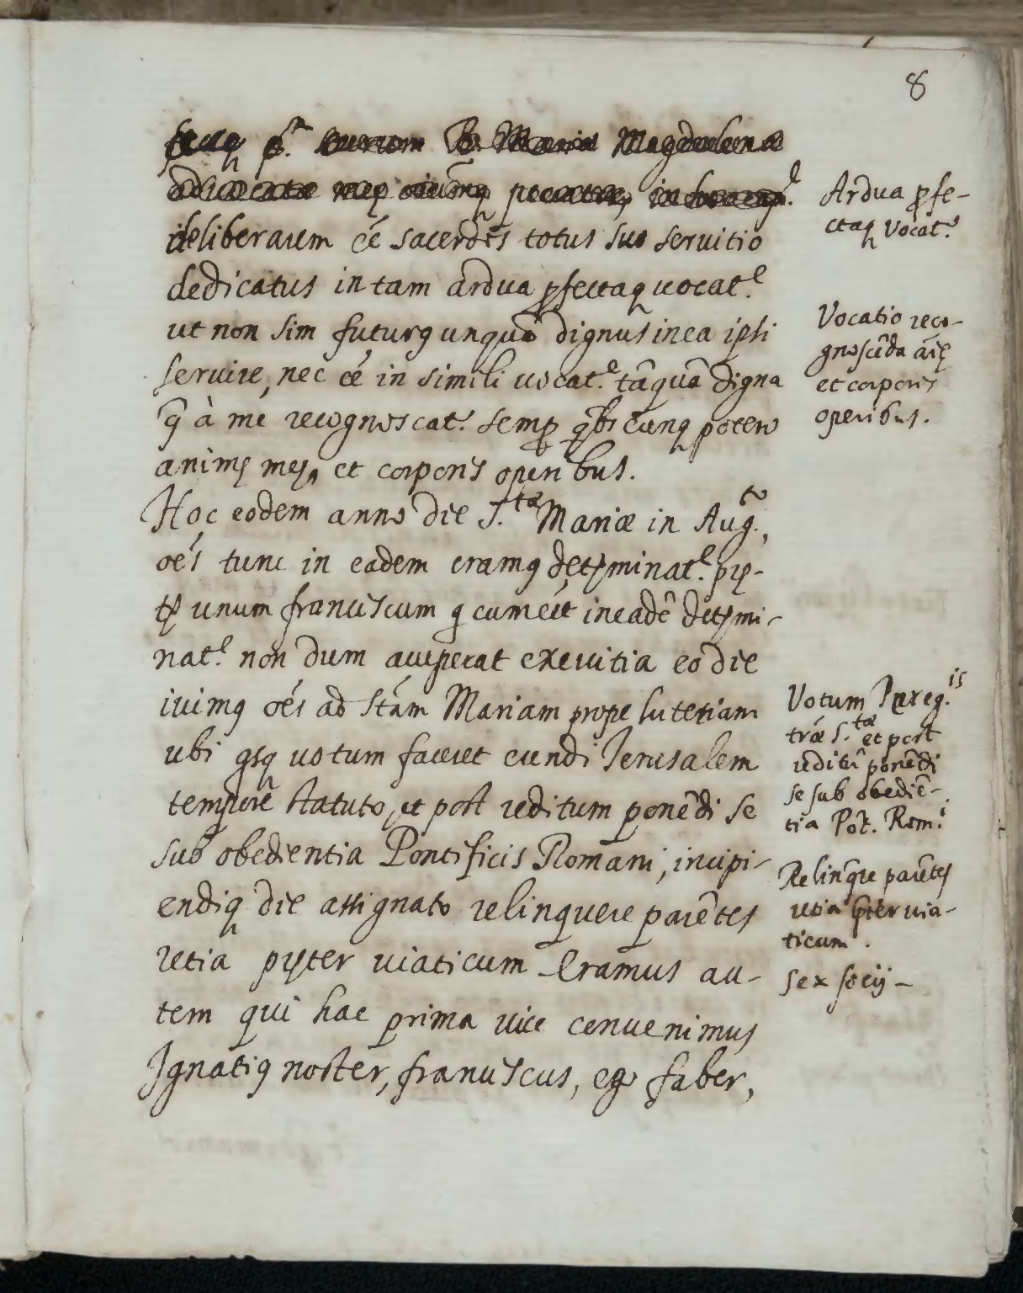 8
feci p.ᵃ B. Mariæ Magdalenæ
deliberaum eé sacerdos totus suo seruitio
dedicatus in tam ardua pfectaq uocat.ᵉ
ut non sim futurꝰ unquā dignus in ea ipsi
seruire, nec eé in simili uocat.ᵉ tāquā digna
q̃ à mé recognoscat.ʳ semp qbscunq potero
animę meę, et corporis operibus.
Hoc eodem anno die S.ᵗᵃ Mariæ in Aug.ᵗᵒ,
oés tunc in eadem eramꝰ determinat.ᵉ pręter
unum franciscum q cum eēt in eadē determi-
nat.ᵉ non dum acceperat exercitia eo die
iuimꝰ oés ad Stām Mariam prope lutetiam
ubi qsq uotum faceret eundi Ierusalem
tempore statuto, et post reditum ponēdi se
sub obedientia Pontificis Romani, incipi-
endiq die assignato relinquere parētes
retia pręter uiaticum Eramus au-
tem qui hac prima uice conuenimus
Ignatiꝰ noster, franciscus, ego faber,
Ardua pfe-
ctaq Vocat.ᵒ
Vocatio reco-
gnoscēda aīę
et corporis
operibus.
Votum Pereg.ⁱˢ
tráe S.ᵗᵃ et post
reditū ponēdi
se sub obediē-
tia Pōt. Rom.ⁱ
Relinq̃re parētes
retia pter uia-
ticum.
Sex socij-